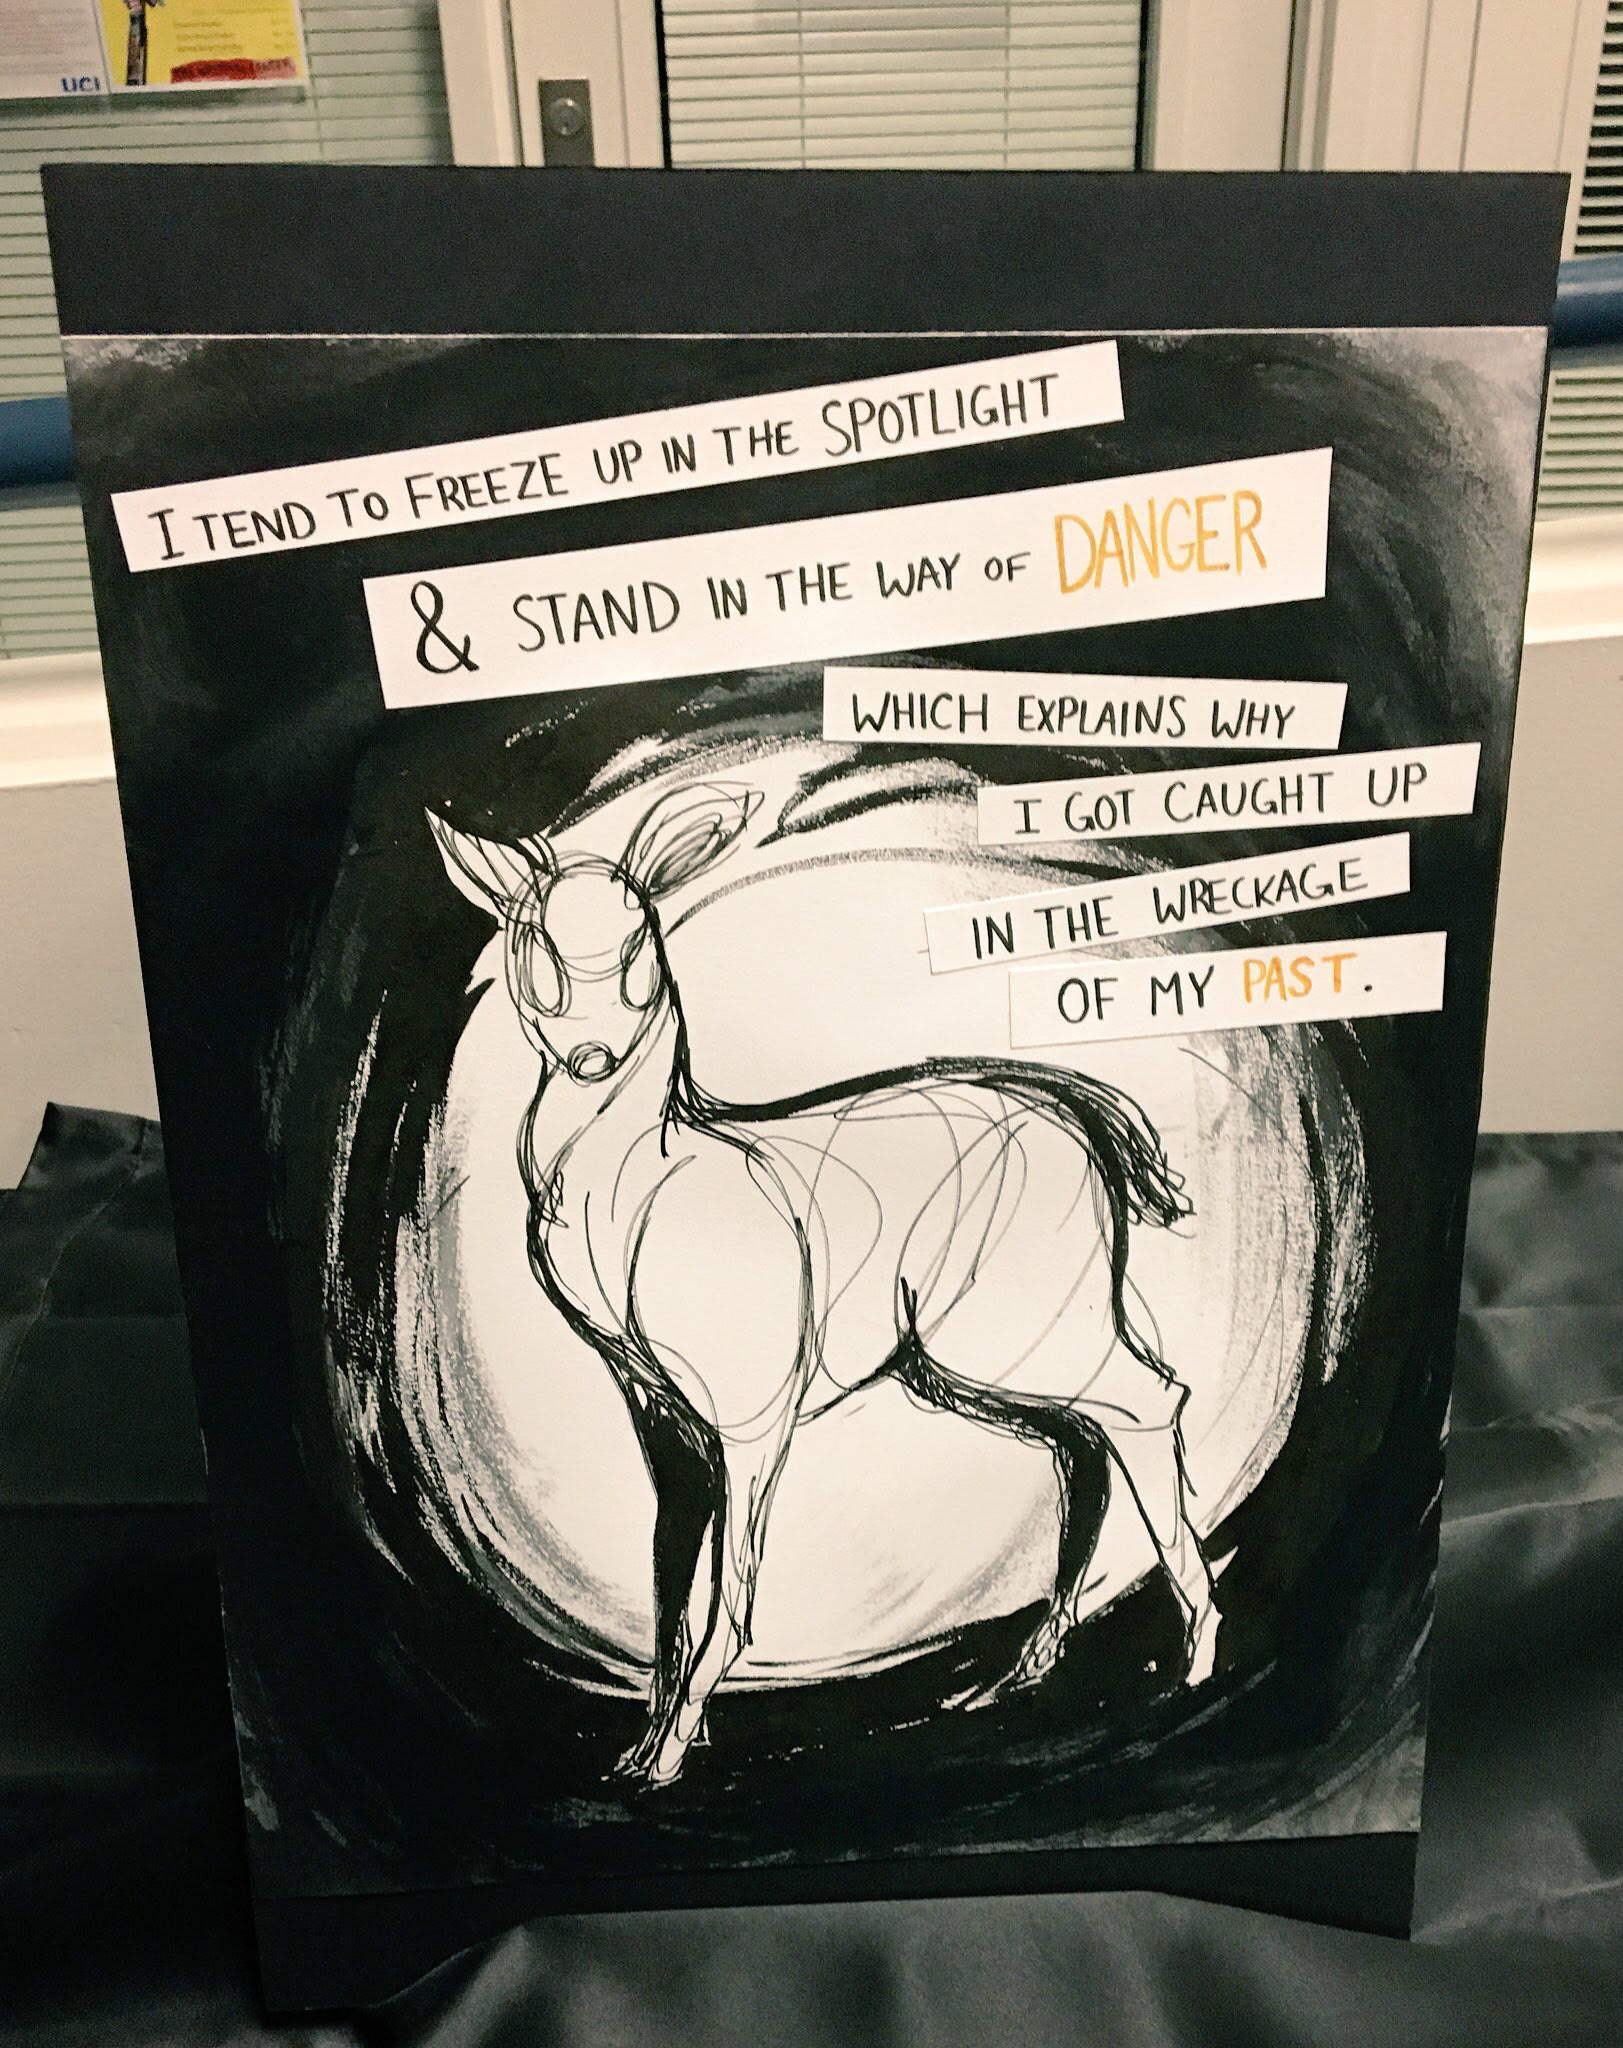 UCI
I TEND TO FREEZE UP IN THE SPOTLIGHT
& STAND IN THE WAY OF DANGER
WHICH EXPLAINS WHY
I GOT CAUGHT UP
IN THE WRECKAGE
OF MY PAST.